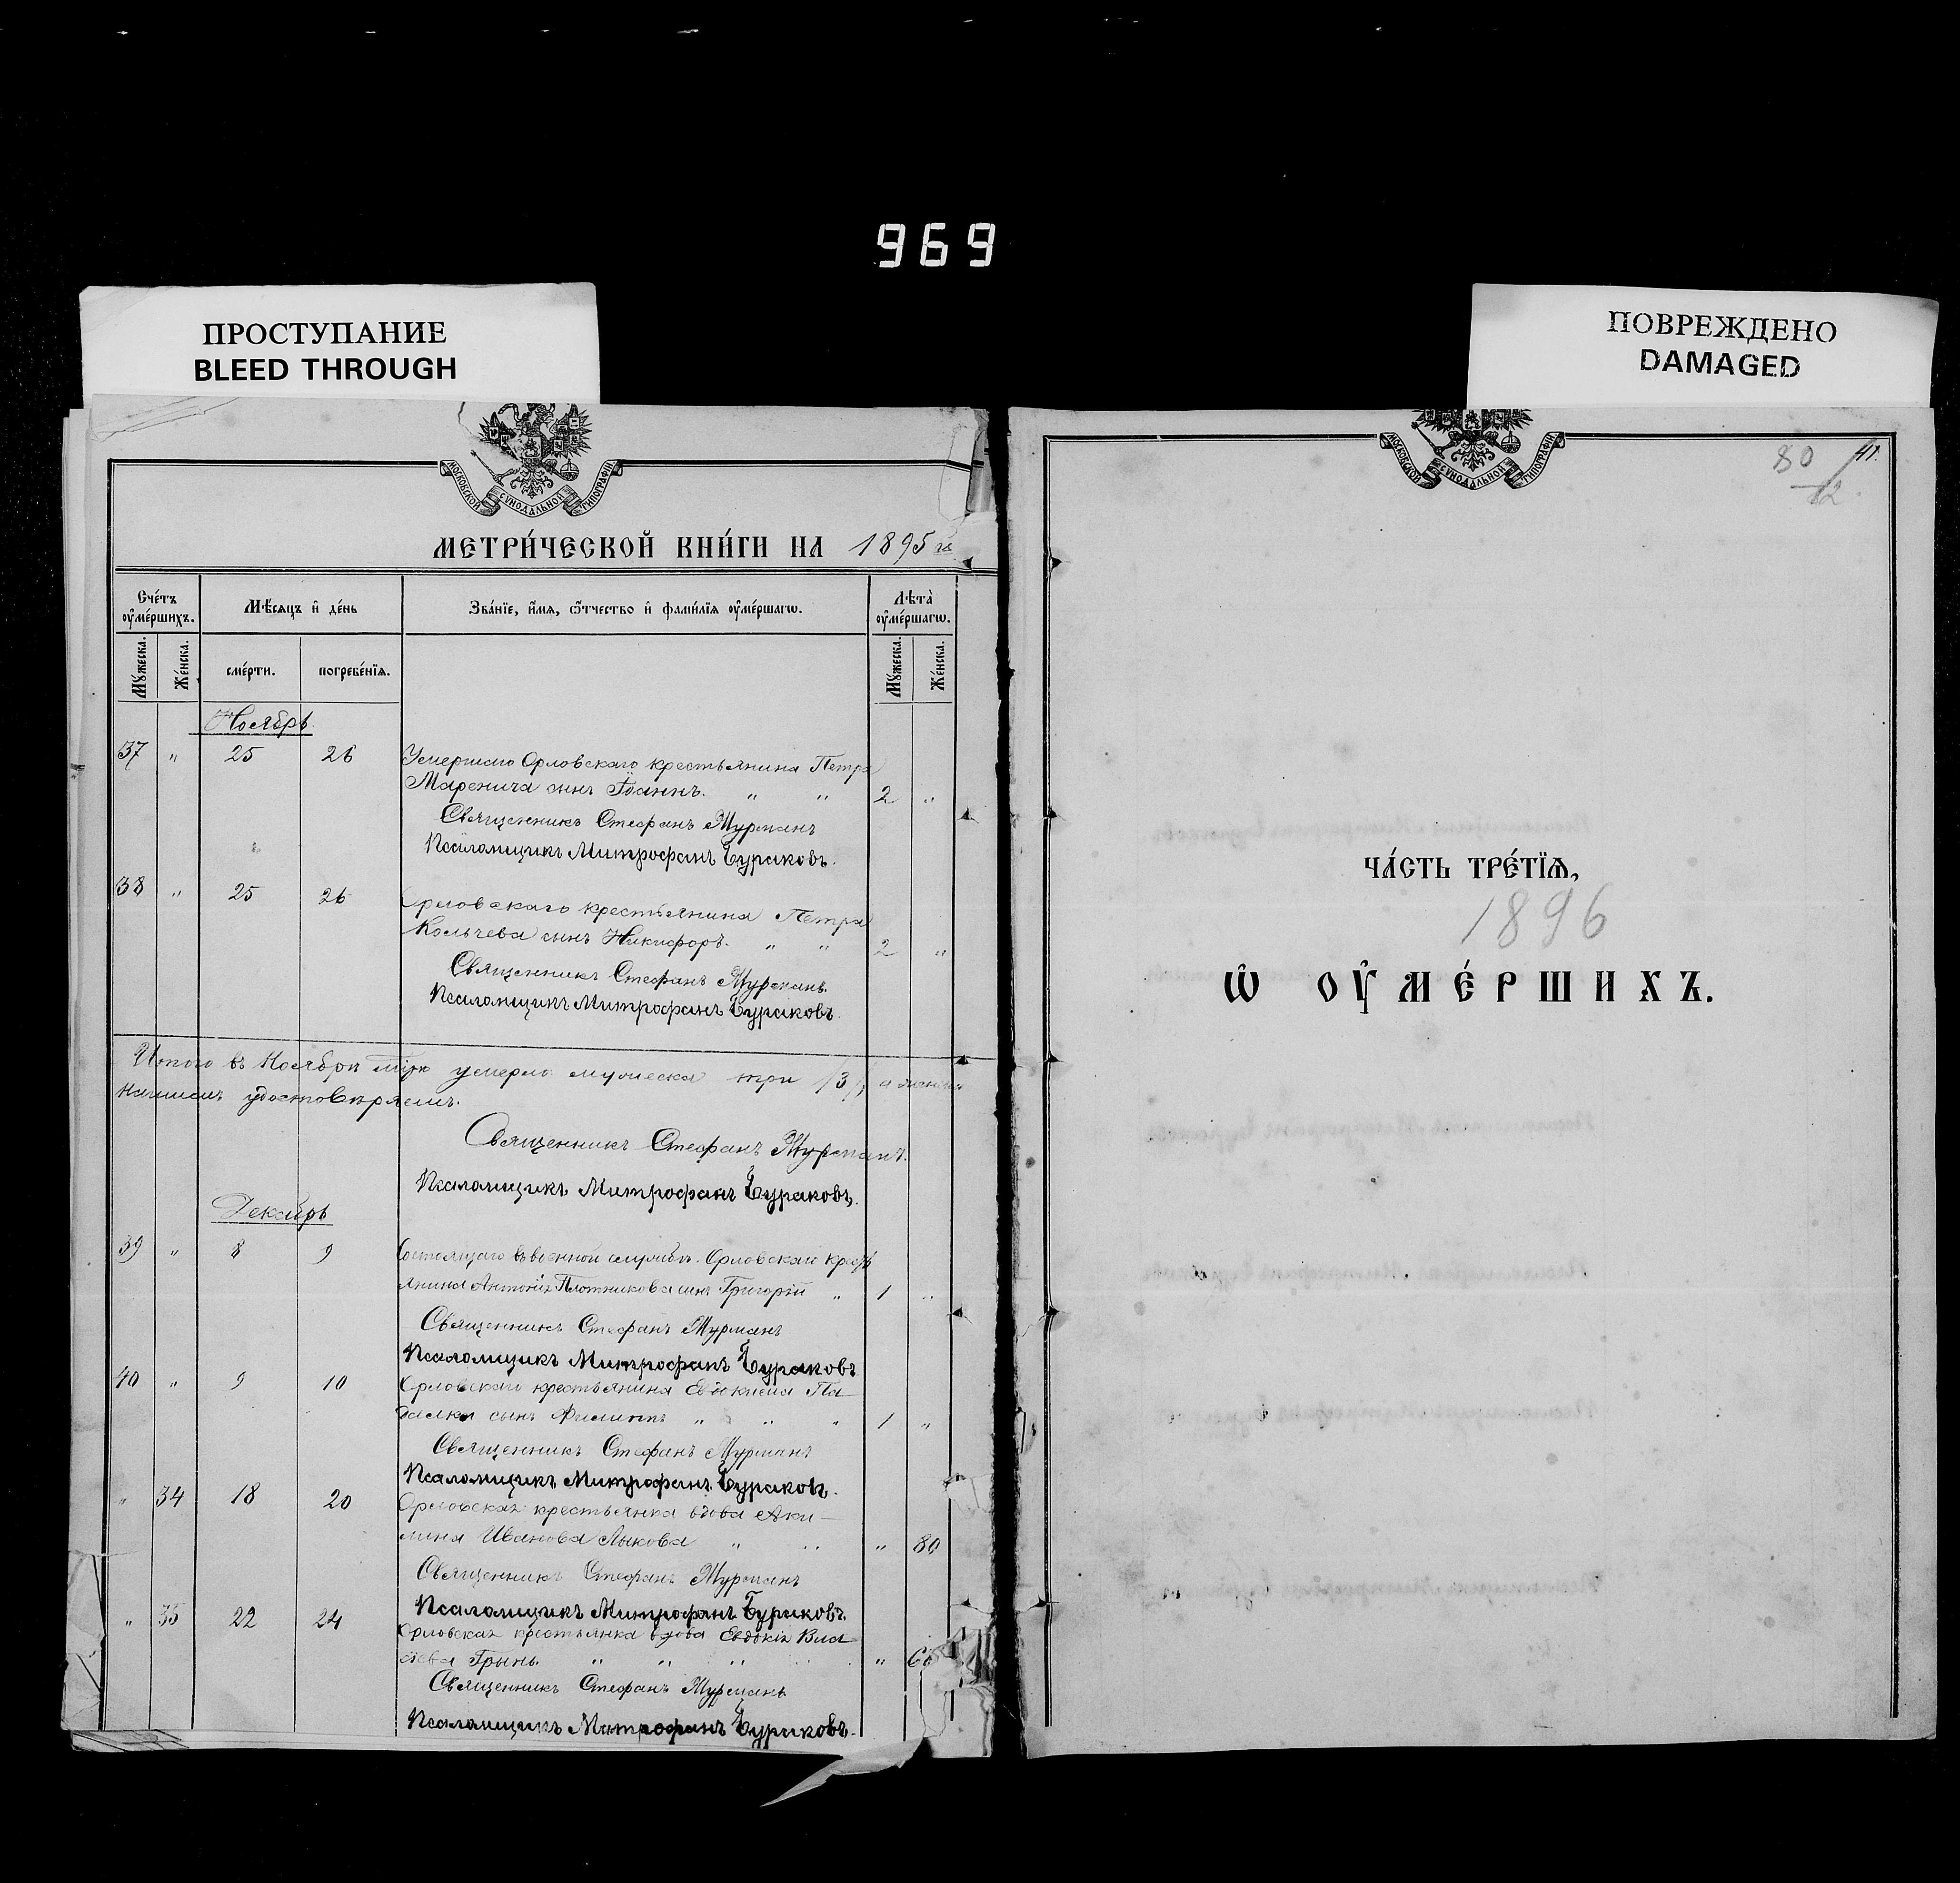 969
ПРОСТУПАНИЕ
BLEED THROUGH
ПОВРЕЖДЕНО
DAMAGED
МОСКОВСКОЙ СУНОДАЛЬНОЙ ТИПОГРАФІИ
МЕТРИ́ЧЕСКОЙ КНИ́ГИ НА 1895 г.
Сче́тъ оу҆ме́ршихъ.
Мѣ́сяцъ и҆ де́нь
Зва́нїе, и҆́мѧ, ѻ҆́тчество и҆ фами́лїѧ оу҆ме́ршагѡ.
Лѣ́та оу҆ме́ршагѡ.
Му́жеска.
Же́нска.
сме́рти.
погребе́нїѧ.
Му́жеска.
Же́нска.
Ноябрь
37 " 25 26 Умершаго Орловскаго крестьянина Петра
Маренича сынъ Іоаннъ. " " 2 "
Священникъ Стефанъ Мурманъ
Псаломщикъ Митрофанъ Бураковъ.
38 " 25 26 Орловскаго крестьянина Петра
Кольчева сынъ Никифоръ. " " 2 "
Священникъ Стефанъ Мурманъ.
Псаломщикъ Митрофанъ Бураковъ.
Итого въ Ноябрѣ умерло мужеска три /3/,
удостовѣряемъ.
Священникъ Стефанъ Мурманъ.
Псаломщикъ Митрофанъ Бураковъ.
Декабрь
39 " 8 9 Состоящаго въ военной службѣ Орловскаго крестьянина
Антонія Плотникова сынъ Григорій " 1 "
Священникъ Стефанъ Мурманъ
Псаломщикъ Митрофанъ Бураковъ
40 " 9 10 Орловскаго крестьянина Па-
далки сынъ Филиппъ " " " 1 "
Священникъ Стефанъ Мурманъ
Псаломщикъ Митрофанъ Бураковъ.
" 34 18 20 Орловская крестьянка вдова Аки-
лина Иванова Лыкова " " " 80
Священникъ Стефанъ Мурманъ
Псаломщикъ Митрофанъ Бураковъ.
" 35 22 24 Орловская крестьянка вдова Евдокія Вла-
сіева Грынь. " " " "
Священникъ Стефанъ Мурманъ
Псаломщикъ Митрофанъ Бураковъ.
МОСКОВСКОЙ СУНОДАЛЬНОЙ ТИПОГРАФІИ
80
41.
ЧА́СТЬ ТРЕ́ТЇѦ,
1896
Ѡ҆ ОУ҆МЕ́РШИХЪ.